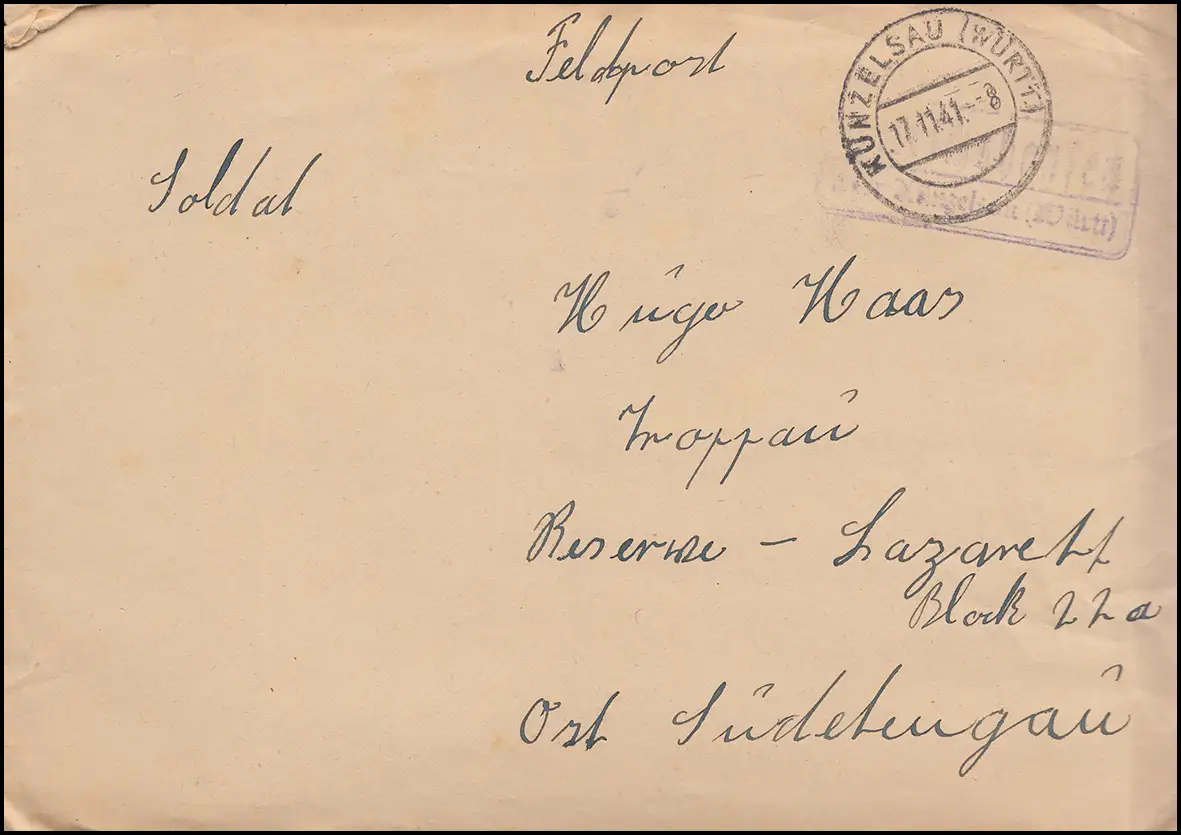 Feldpost
KÜNZELSAU (WÜRTT)
17.11.41.--8
Soldat
Hugo Haas
Troppau
Reserwe - Lazarett
Block 22a
Ost Sudetengau